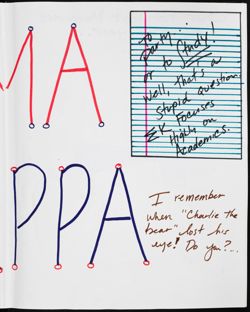 MA
To
party...
or to Study!
Well, that's a
Stupid question...
EK Focuses
Highly on
Academics.
PPA
I remember
when "Charlie the
bear" lost his
eye! Do you?...